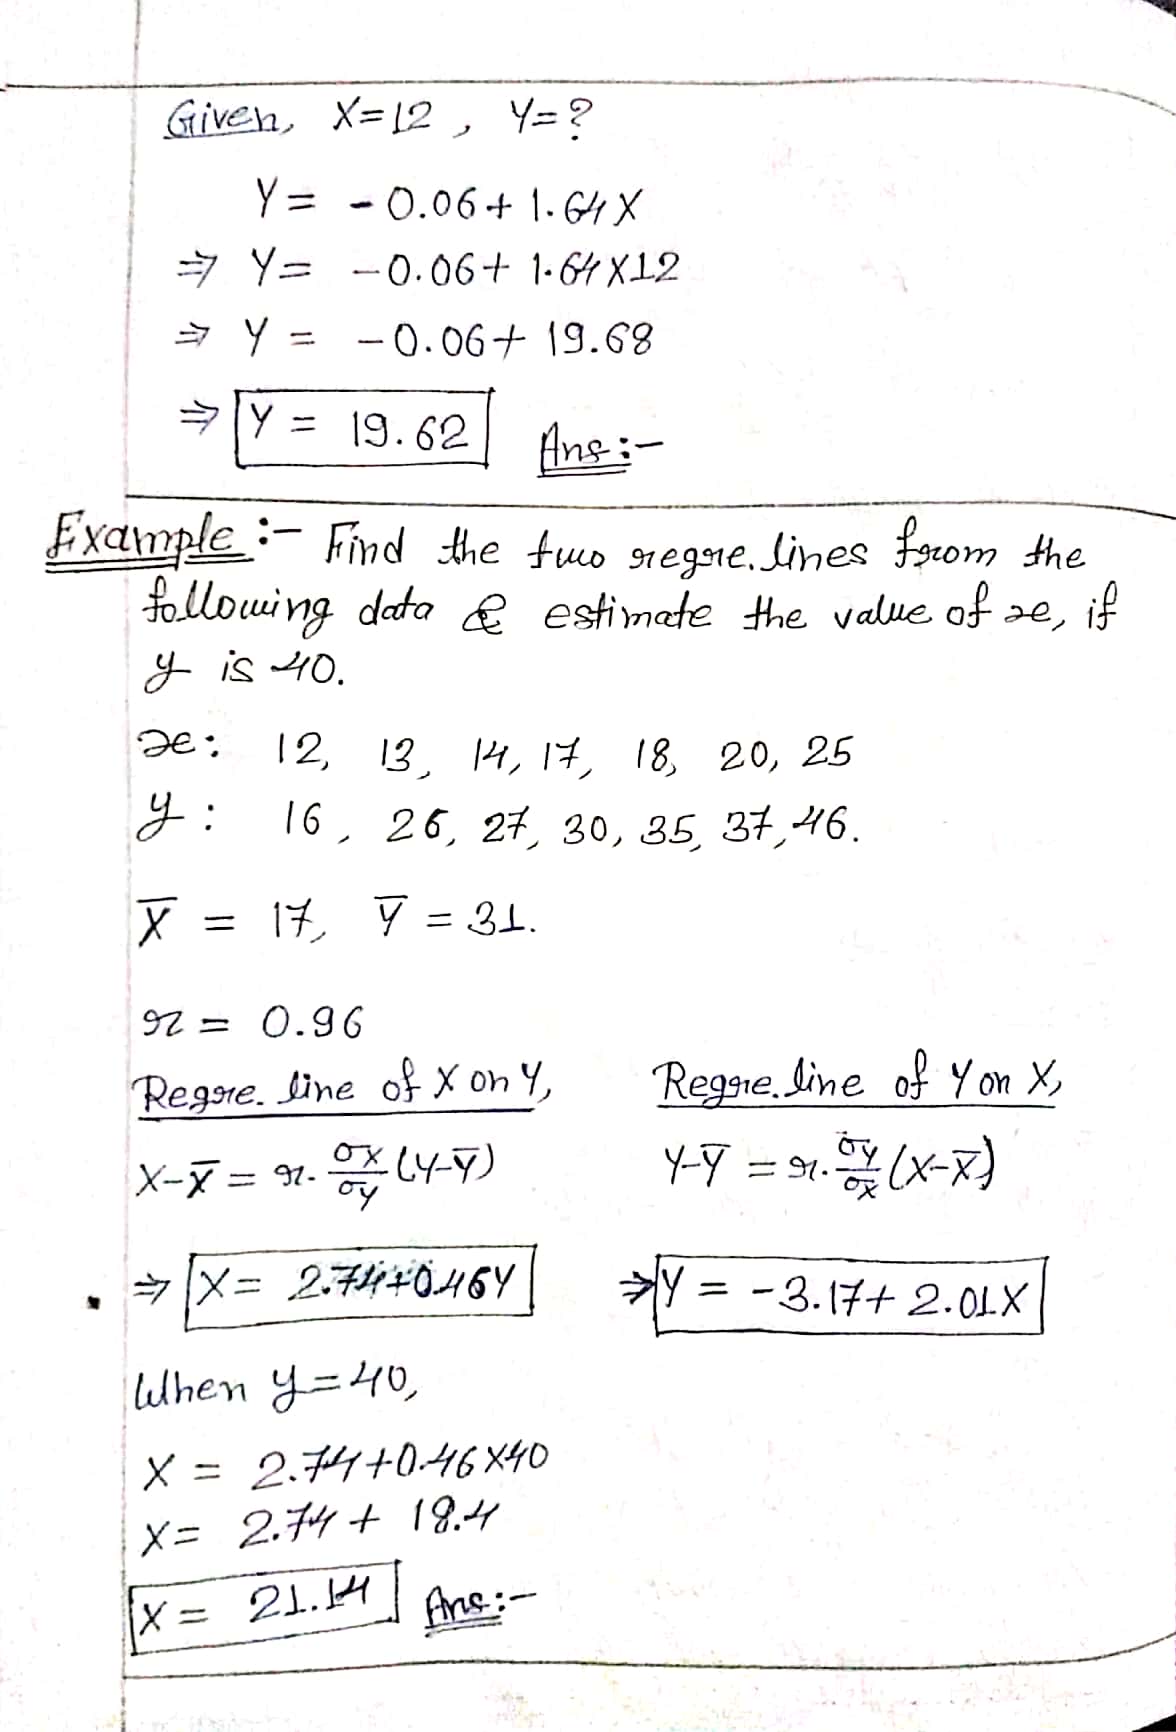 Given, X=12, Y=?
Y = -0.06+ 1.64 X
⇒ Y = -0.06+ 1.64 X12
⇒ Y = -0.06+ 19.68
⇒ Y = 19.62 Ans:-
Example:- Find the two regre. lines from the
following data & estimate the value of x, if
y is 40.
x: 12, 13, 14, 17, 18, 20, 25
y: 16, 26, 27, 30, 35, 37, 46.
X̅ = 17, Y̅ = 31.
r = 0.96
Regre. line of X on Y, Regre. line of Y on X,
X-X̅ = r. σx/σy (Y-Y̅) Y-Y̅ = r. σy/σx (X-X̅)
⇒ X = 2.74+0.46Y ⇒ Y = -3.17+ 2.01X
When y=40,
X = 2.74+0.46X40
X = 2.74 + 18.4
X = 21.14 Ans:-